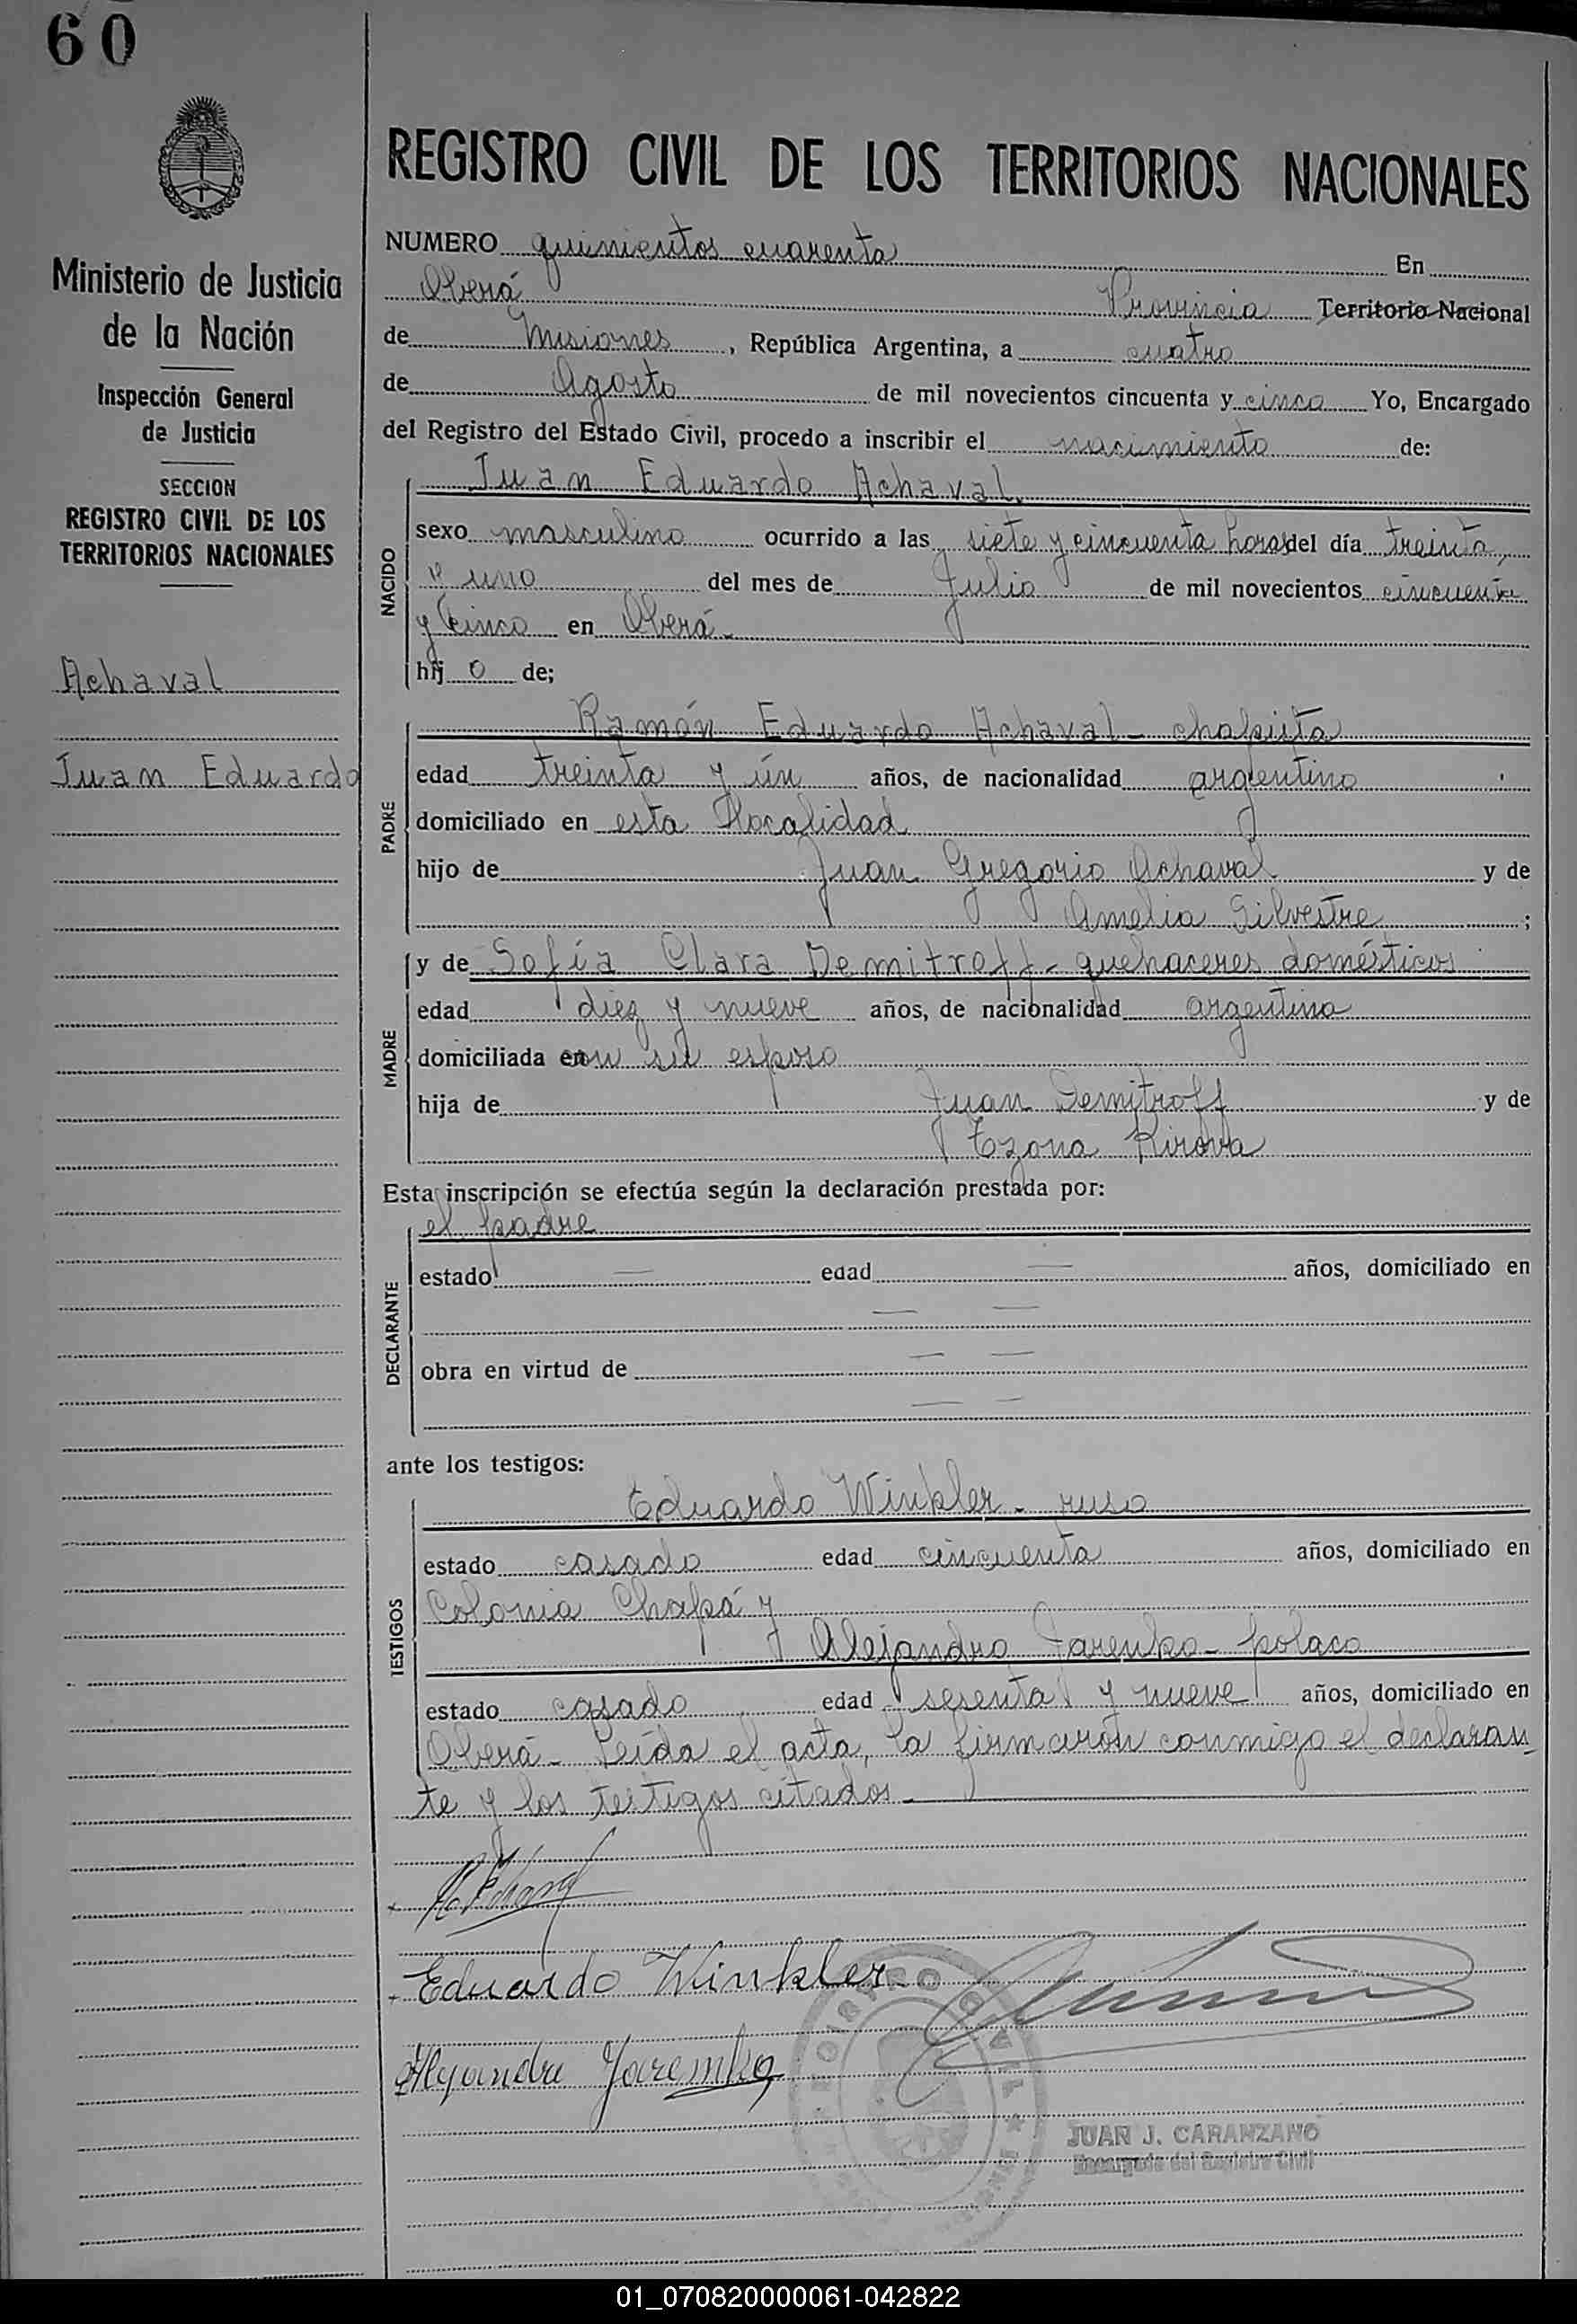 60
Ministerio de Justicia
de la Nación
Inspección General
de Justicia
SECCION
REGISTRO CIVIL DE LOS
TERRITORIOS NACIONALES
Achaval
Juan Eduardo
REGISTRO CIVIL DE LOS TERRITORIOS NACIONALES
NUMERO quinientos cuarenta En
Oberá Provincia Territorio Nacional
de Misiones, República Argentina, a cuatro
de Agosto de mil novecientos cincuenta y cinco Yo, Encargado
del Registro del Estado Civil, procedo a inscribir el nacimiento de:
NACIDO
Juan Eduardo Achaval.
sexo masculino ocurrido a las siete y cincuenta horas del día treinta
y uno del mes de Julio de mil novecientos cincuenta
y cinco en Oberá-
hij o de;
PADRE
Ramón Eduardo Achaval - chapista
edad treinta y ún años, de nacionalidad argentino
domiciliado en esta localidad
hijo de Juan Gregorio Achaval y de
Amelia Silvestre;
MADRE
y de Sofía Clara Demitroff - quehaceres domésticos
edad diez y nueve años, de nacionalidad argentina
domiciliada en con su esposo
hija de Juan Demitroff y de
Kirova
Esta inscripción se efectúa según la declaración prestada por:
DECLARANTE
el padre
estado — edad — años, domiciliado en
— —
obra en virtud de — —
— —
ante los testigos:
TESTIGOS
Eduardo Winkler - ruso
estado casado edad cincuenta años, domiciliado en
Colonia Chapá y
Alejandro Jarenko - polaco
estado casado edad sesenta y nueve años, domiciliado en
Oberá - Leída el acta, la firmaron conmigo el declaran-
te y los testigos citados -
Eduardo Winkler
Jaremko
REGISTRO CIVIL
JUAN J. CARANZANO
Encargado del Registro Civil
01_070820000061-042822